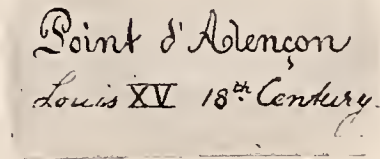 Point d'Alençon
Louis XV 18th Century.